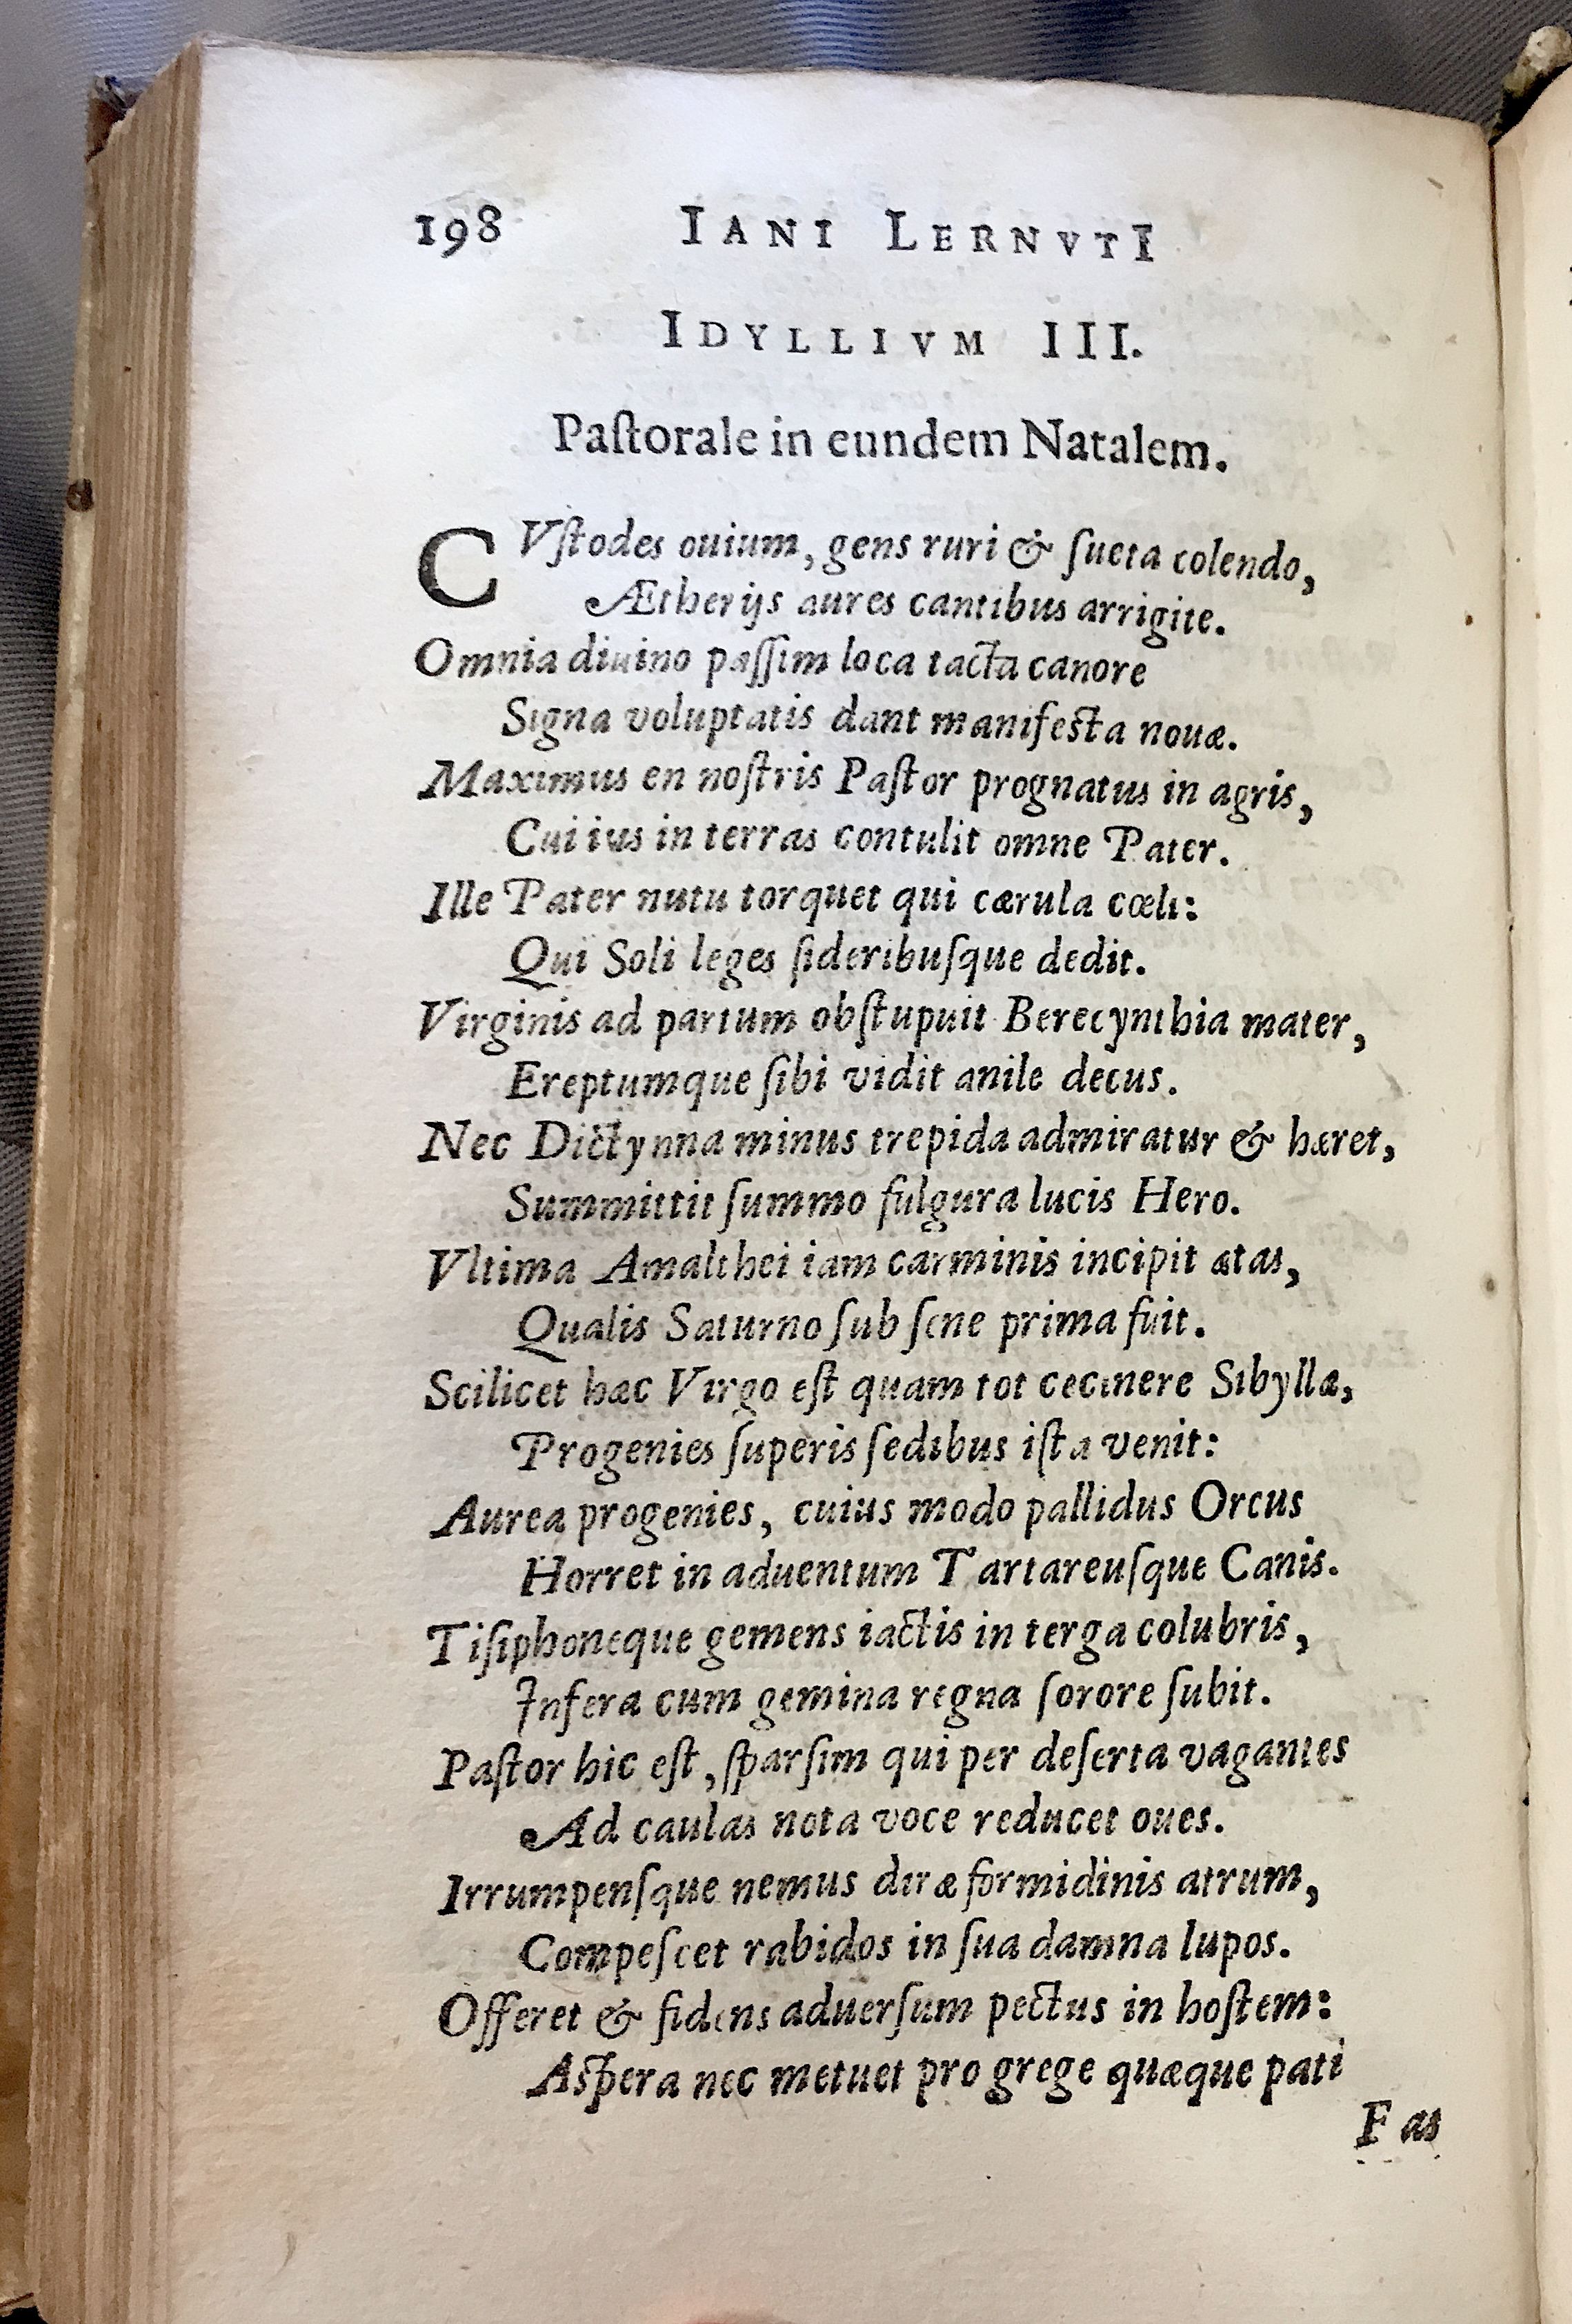 198 IANI LERNVTI
IDYLLIVM III.
Paſtorale in eundem Natalem.
CVſtodes ouium, gens ruri & ſueta colendo,
Ætherijs aures cantibus arrigite.
Omnia diuino paſſim loca tacta canore
Signa voluptatis dant manifesta nouæ.
Maximus en noſtris Paſtor prognatus in agris,
Cui ius in terras contulit omne Pater.
Ille Pater nutu torquet qui cærula cœli:
Qui Soli leges ſideribuſque dedit.
Virginis ad partum obſtupuit Berecynthia mater,
Ereptumque ſibi vidit anile decus.
Nec Dictynna minus trepida admiratur & hæret,
Summittit ſummo fulgura lucis Hero.
Vltima Amalthei iam carminis incipit ætas,
Qualis Saturno ſub ſene prima fuit.
Scilicet hæc Virgo eſt quam tot cecinere Sibyllæ,
Progenies ſuperis ſedibus iſta venit:
Aurea progenies, cuius modo pallidus Orcus
Horret in aduentum Tartareuſque Canis.
Tiſiphoneque gemens iactis in terga colubris,
Infera cum gemina regna ſorore ſubit.
Paſtor hic eſt, ſparſim qui per deſerta vagantes
Ad caulas nota voce reducet oues.
Irrumpenſque nemus diræ formidinis atrum,
Compeſcet rabidos in ſua damna lupos.
Offeret & fidens aduerſum pectus in hoſtem:
Aspera nec metuet pro grege quæque pati
Fas